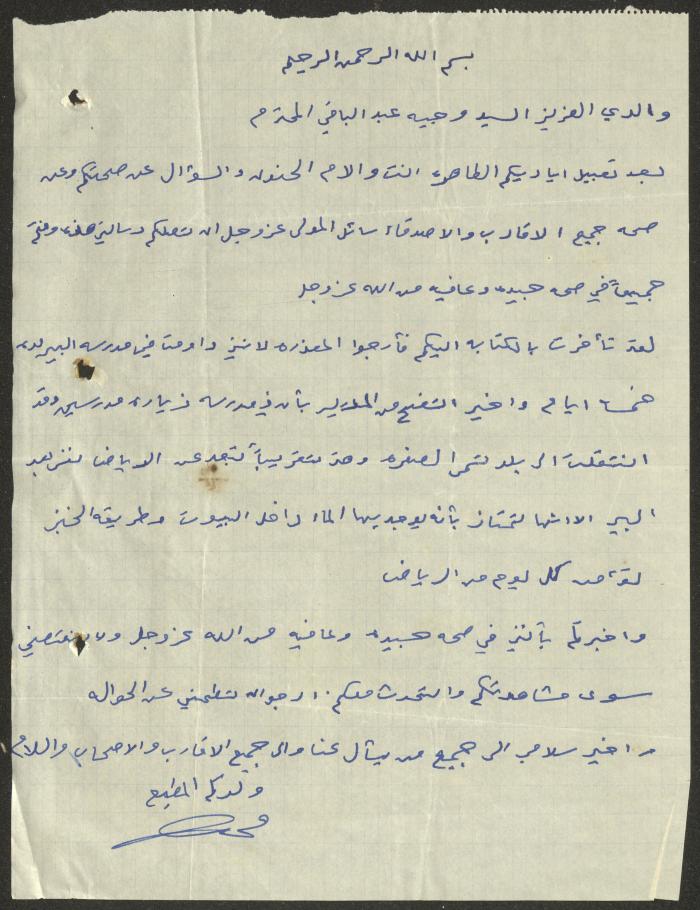 بسم الله الرحمن الرحيم
والدي العزيز السيد وجيه عبد الباقي المحترم
بعد تقبيل اياديكم الطاهره انت والام الحنونه والسؤال عن صحتكم وعن
صحه جميع الاقارب والاصدقاء سائل المولى عزوجل ان تصلكم رسالتي هذه وانتم
جميعاً في صحه جيده وعافيه من الله عزوجل
لقد تأخرت بالكتابه اليكم فأرجوا المعذره لانني داومت في مدرسه البير لمده
خمسة ايام واخير اتضح من المدير بأن في مدرسه زياده مدرسين وقد
انتقلت الى بلد تسمى الصفره وهي تقريباً تبعد عن الرياض نفس بعد
البير الا انها تمتاز بأنه يوجد بها الماء داخل البيوت وطريقه الخبز
تؤمن كل يوم من الرياض
واخبركم بأنني في صحه جيده وعافيه من الله عزوجل ولا ينقصني
سوى مشاهدتكم والتحدث معكم. ارجوا ان تطمني عن الحواله
واخير سلامي الى جميع من يسأل عنا والى جميع الاقارب والاصحاب والسلام
ولدكم المطيع